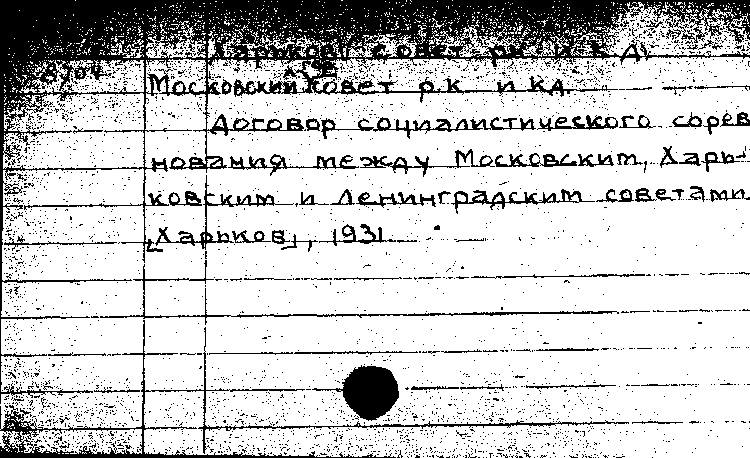 Харьков совет рк и КД,
8704
Московский совет р.к и КД.
Договор социалистического сорев
нования между Московским, Харь-
ковским и Ленинградским советами
[Харьков], 1931